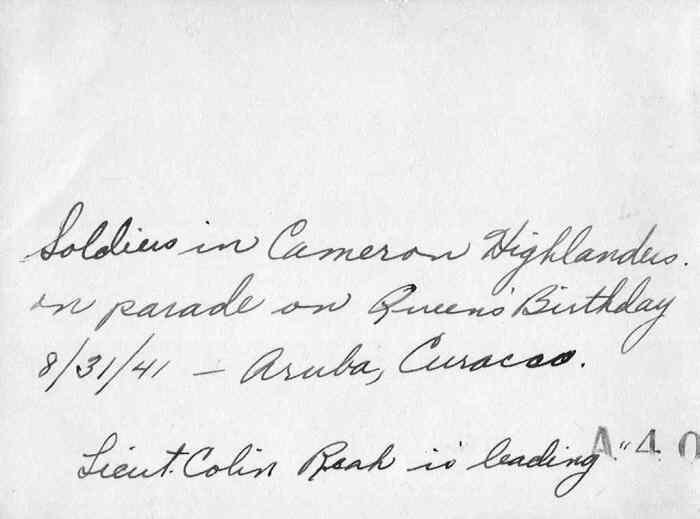 Soldiers in Cameron Highlanders.
on parade on Queens' Birthday
8/31/41 — Aruba, Curacao.
Lieut. Colin Reah is leading
A "4 0